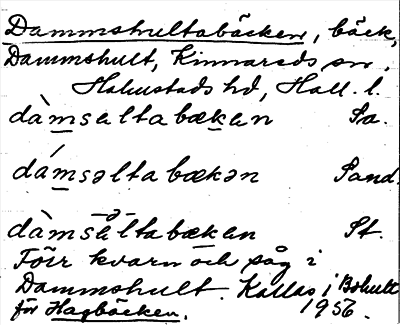 Dammshultabäcken, bäck,
Dammshult, Kinnareds sn,
Halmstads hd, Hall. l.
dàmsəltabækən Sa.
dámsəltabækən Sand.
dàmsəltabækən St.
Förr kvarn och såg i
Dammshult. Kallas i Bohult
för Hagbäcken. 1956.